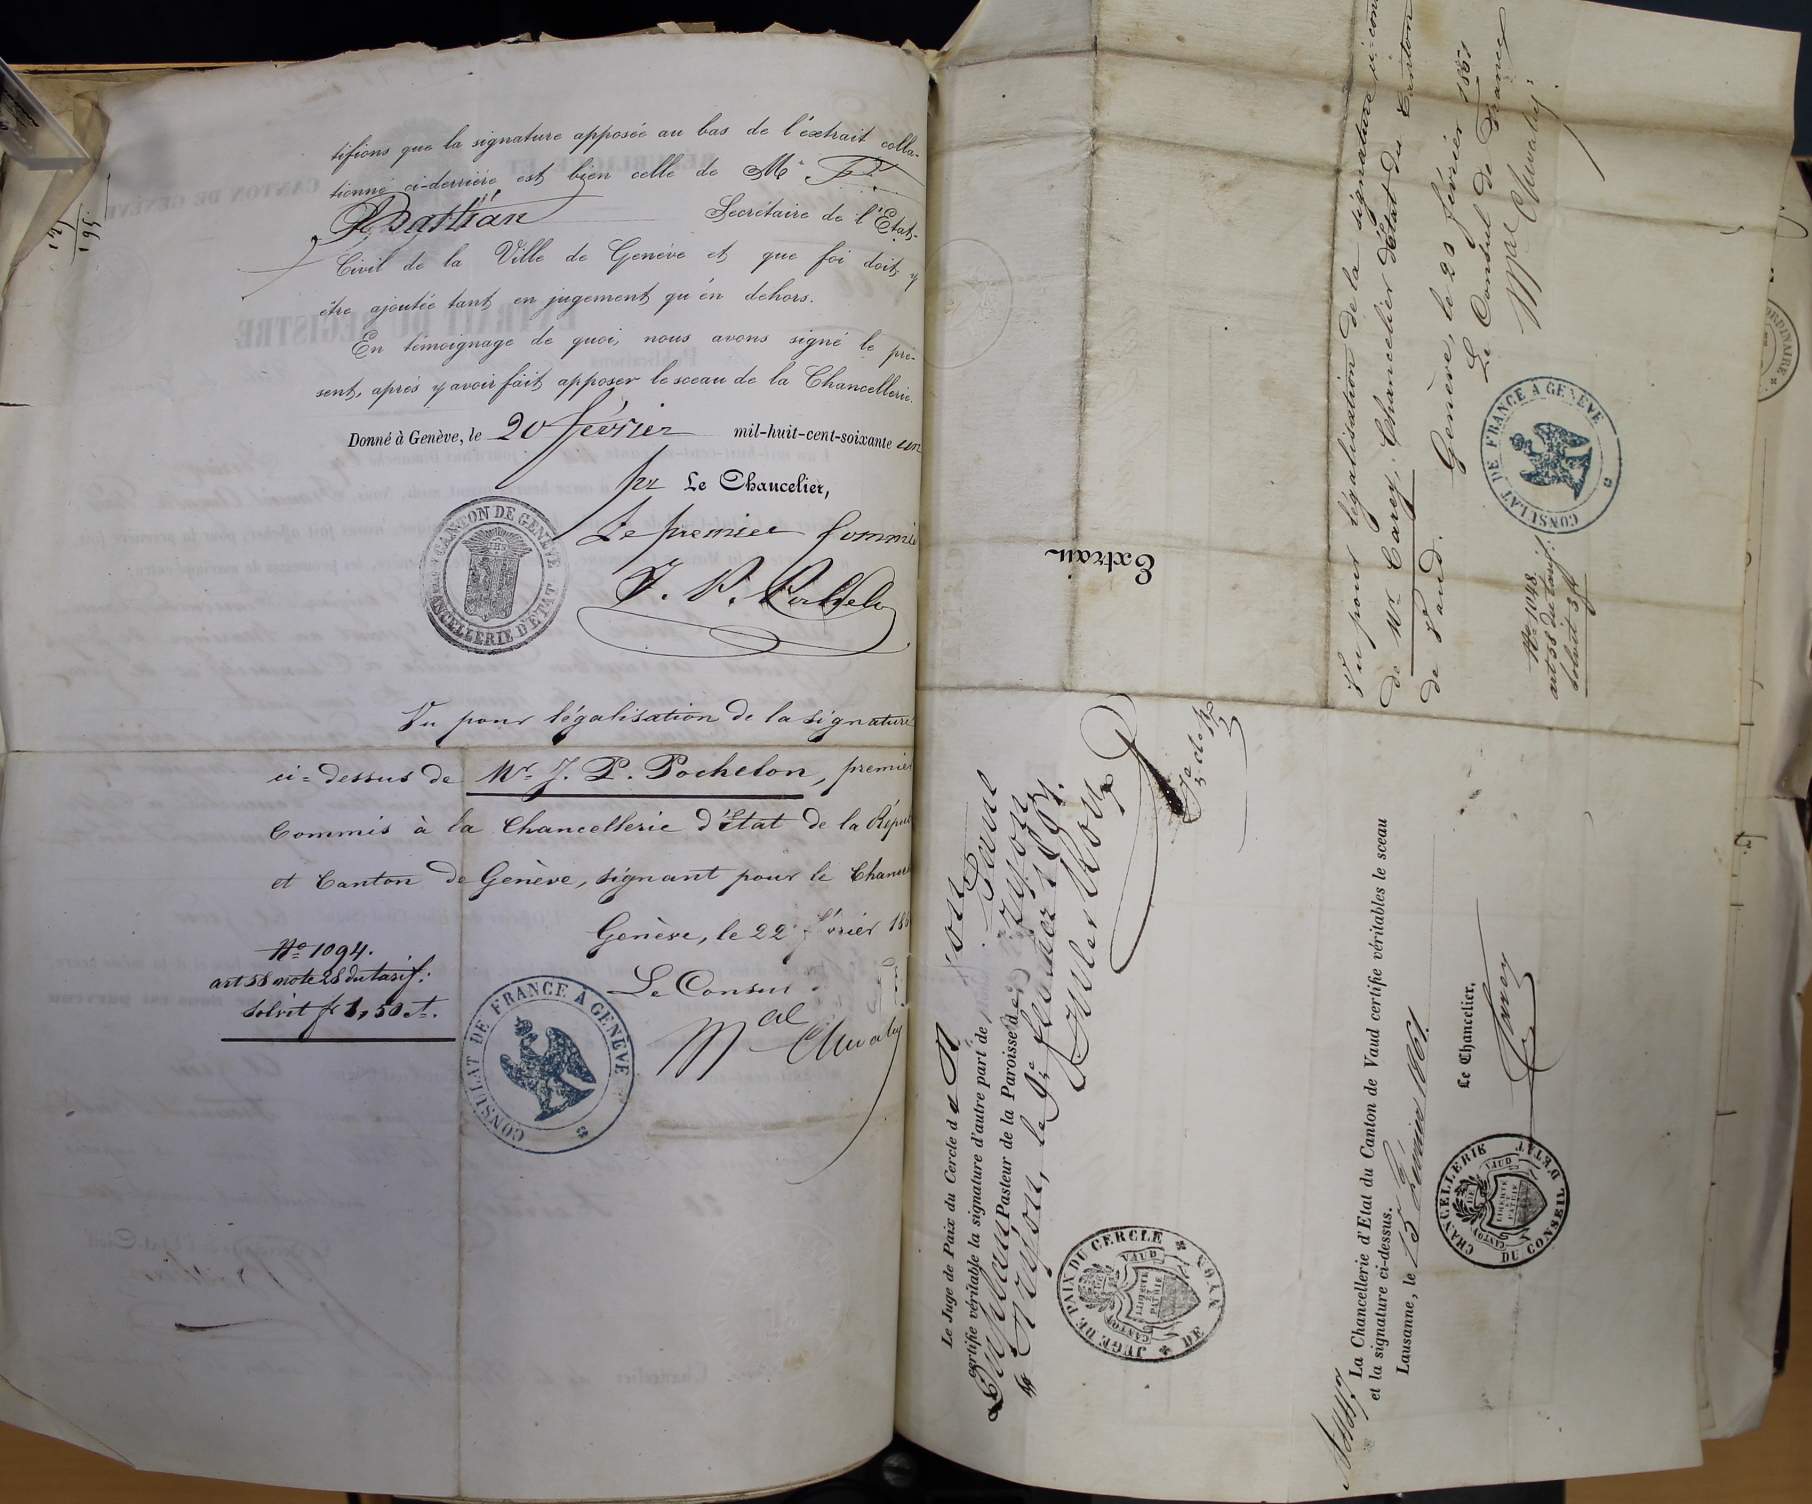 tifions que la signature apposée au bas de l'extrait colla-
tionné ci-derrière est bien celle de Mr
Bastian Secrétaire de l'Etat-
Civil de la Ville de Genève et que foi doit y
être ajoutée tant en jugement qu'en dehors.
En témoignage de quoi, nous avons signé le pré-
sent, après y avoir fait apposer le sceau de la Chancellerie.
Donné à Genève, le 20 février mil-huit-cent-soixante un
pr Le Chancelier,
Le premier Commis
J. P. Pochelon
CANTON DE GENÈVE
CHANCELLERIE D'ETAT
Vu pour légalisation de la signature
ci-dessus de Mr. J. P. Pochelon, premier
Commis à la Chancellerie d'État de la Répu
et Canton de Genève, signant pour le Chance
Genève, le 22 février 18
Le Consul
Mal Chevaley
No 1094.
art 58 note 28 du tarif:
Solvit fr 1,50 ct.
CONSULAT DE FRANCE A GENEVE
Extrait
Vu pour légalisation de la signature ci-con
de Mr Carey, Chancelier d'État du Canton
de Vaud.
Genève, le 22 février 1861
Le Consul de France
Mal Chevaley
No 1048.
art 58 du tarif.
Solvit 3 f
CONSULAT DE FRANCE A GENEVE
Le Juge de Paix du Cercle de Nyon
certifie véritable la signature d'autre part de Paul
Pasteur de la Paroisse de
le 9e février 1861.
Jules Roux
Je de Px
JUGE DE PAIX DU CERCLE DE NYON
CANTON DE VAUD
LIBERTÉ ET PATRIE
La Chancellerie d'Etat du Canton de Vaud certifie véritables le sceau
et la signature ci-dessus.
Lausanne, le 15 février 1861.
Le Chancelier,
Carey
CHANCELLERIE DU CONSEIL D'ETAT
CANTON DE VAUD
LIBERTÉ ET PATRIE